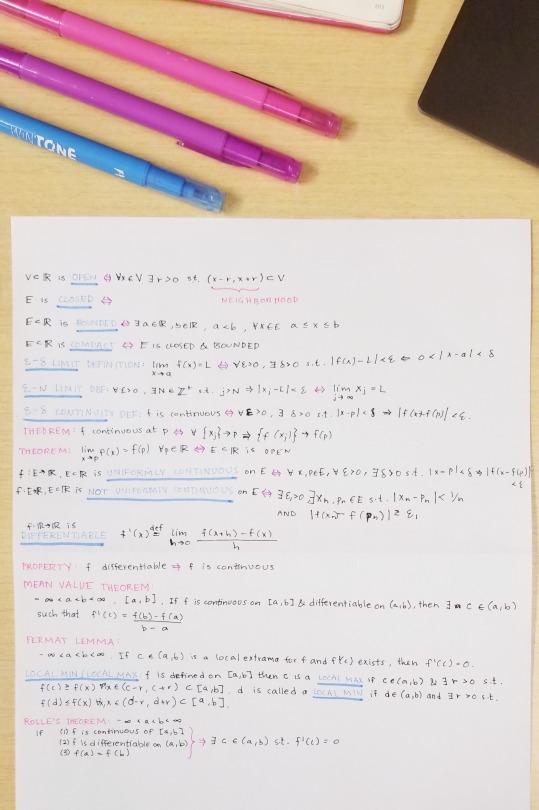 WIN'TONE
V⊂ℝ is OPEN ⇔ ∀x∈V ∃r>0 s.t. (x-r, x+r) ⊂ V
NEIGHBORHOOD
E is CLOSED ⇔
E⊂ℝ is BOUNDED ⇔ ∃a∈ℝ, b∈ℝ, a<b, ∀x∈E a≤x≤b
E⊂ℝ is COMPACT ⇔ E is CLOSED & BOUNDED
ε-δ LIMIT DEFINITION: lim x→a f(x)=L ⇔ ∀ε>0, ∃δ>0 s.t. |f(x)-L|<ε ⇐ 0<|x-a|<δ
ε-N LIMIT DEF: ∀ε>0, ∃N∈ℤ⁺ s.t. j>N ⇒ |xⱼ-L|<ε ⇔ lim j→∞ xⱼ=L
ε-δ CONTINUITY DEF: f is continuous ⇔ ∀ε>0, ∃δ>0 s.t. |x-p|<δ ⇒ |f(x)-f(p)|<ε.
THEOREM: f continuous at p ⇔ ∀{xⱼ}→p ⇒ {f(xⱼ)}→f(p)
THEOREM: lim x→p f(x)=f(p) ∀p∈ℝ ⇔ E⊂ℝ is OPEN
f:E→ℝ, E⊂ℝ is UNIFORMLY CONTINUOUS on E ⇔ ∀x,p∈E, ∀ε>0, ∃δ>0 s.t. |x-p|<δ ⇒ |f(x)-f(p)|<ε
f:E→ℝ, E⊂ℝ is NOT UNIFORMLY CONTINUOUS on E ⇔ ∃ε₁>0, ∃xₙ,pₙ∈E s.t. |xₙ-pₙ|<1/n
AND |f(xₙ)-f(pₙ)|≥ε₁
f:ℝ→ℝ is
DIFFERENTIABLE f'(x) def= lim h→0 (f(x+h)-f(x))/h
PROPERTY: f differentiable ⇒ f is continuous
MEAN VALUE THEOREM:
-∞<a<b<∞, [a,b], If f is continuous on [a,b] & differentiable on (a,b), then ∃ c∈(a,b)
such that f'(c) = (f(b)-f(a))/(b-a)
FERMAT LEMMA:
-∞<a<b<∞. If c∈(a,b) is a local extrama for f and f'(c) exists, then f'(c)=0.
LOCAL MIN/LOCAL MAX: f is defined on [a,b] then c is a LOCAL MAX if c∈(a,b) & ∃r>0 s.t.
f(c)≥f(x) ∀x∈(c-r, c+r)⊂[a,b]. d is called a LOCAL MIN if d∈(a,b) and ∃r>0 s.t.
f(d)≤f(x) ∀x∈(d-r, d+r)⊂[a,b].
ROLLE'S THEOREM: -∞<a<b<∞
If (1) f is continuous of [a,b]
(2) f is differentiable on (a,b) ⇒ ∃c∈(a,b) s.t. f'(c)=0
(3) f(a)=f(b)